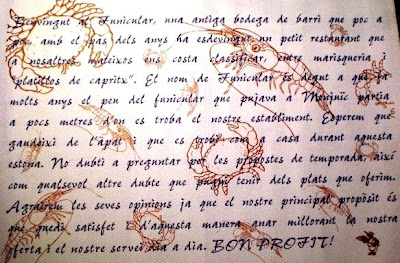 Benvingut al Funicular, una antiga bodega de barri que poc a
poc amb el pas dels anys ha esdevingut un petit restaurant que
a nosaltres mateixos ens costa classificar, entre marisqueria i
"platillos de capritx". El nom de Funicular és degut a que ja
molts anys el peu del funicular que pujava a Montjuïc partia
a pocs metres d'on es troba el nostre establiment. Esperem que
gaudeixi de l'àpat i que es trobi com a casa durant aquesta
estona. No dubti a preguntar por les propostes de temporada, així
com qualsevol altre dubte que pugui tenir dels plats que oferim.
Agrairem les seves opinions ja que el nostre principal propòsit és
que quedi satisfet i d'aquesta manera anar millorant la nostra
oferta i el nostre servei dia a dia. BON PROFIT!